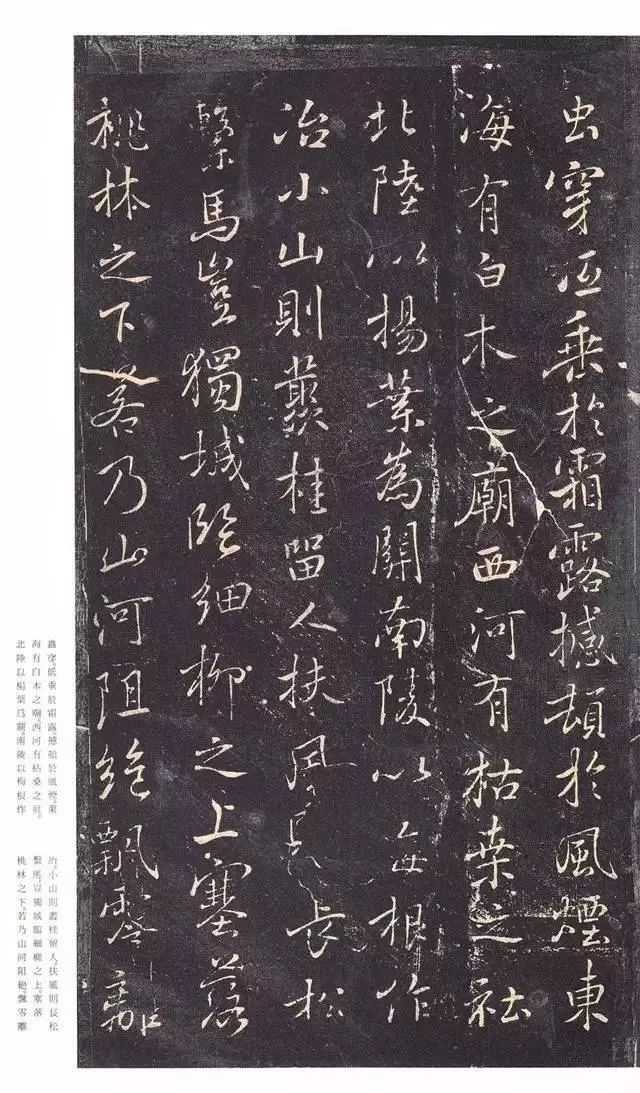 虫穿低垂於霜露撼頓於風煙東
海有白木之廟西河有枯桒之社
北陸以揚葉為關南陵以每根作
冶小山則叢桂留人扶風則長松
繫馬豈獨城臨細柳之上塞落
桃林之下若乃山河阻絕飄零離
蟲穿。低垂於霜露，撼頓於風煙。東
海有白木之廟，西河有枯桑之社。
北陸以楊葉爲關，南陵以梅根作
冶。小山則叢桂留人，扶風則長松
繫馬。豈獨城臨細柳之上，塞落
桃林之下。若乃山河阻絕，飄零離